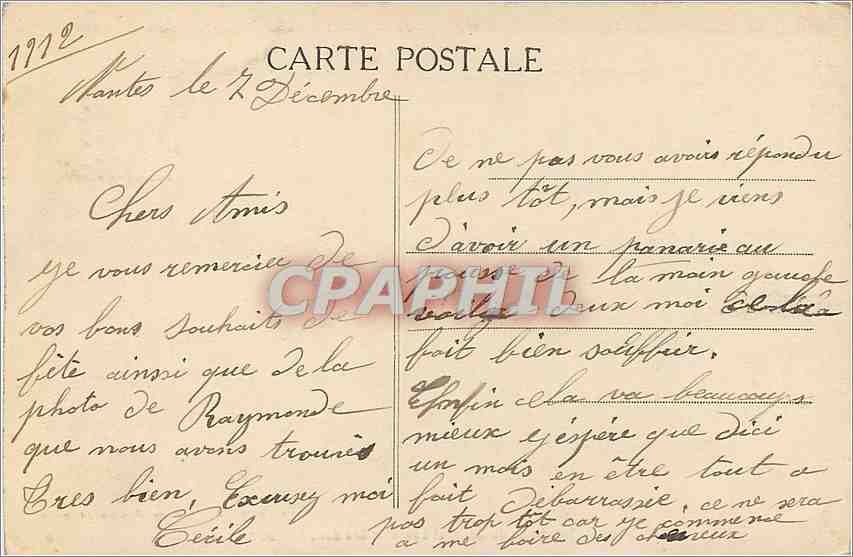 1912
CARTE POSTALE
Nantes le 7 Décembre
Chers Amis
je vous remercie de
vos bons souhaits de
fête ainsi que de la
photo de Raymonde
que nous avons trouvés
Très bien, Excusez moi
Cécile
De ne pas vous avoirs répondu
plus tôt, mais je viens
d'avoir un panarie au
pousse de la main gauche
voila deux moi
fait bien souffrir.
Enfin cela va beaucoups
mieux ej'éspère que d'ici
un mois en être tout a
fait débarrassée. ce ne sera
pas trop tôt car je commence
a me faire des cheveux
CPAPHIL